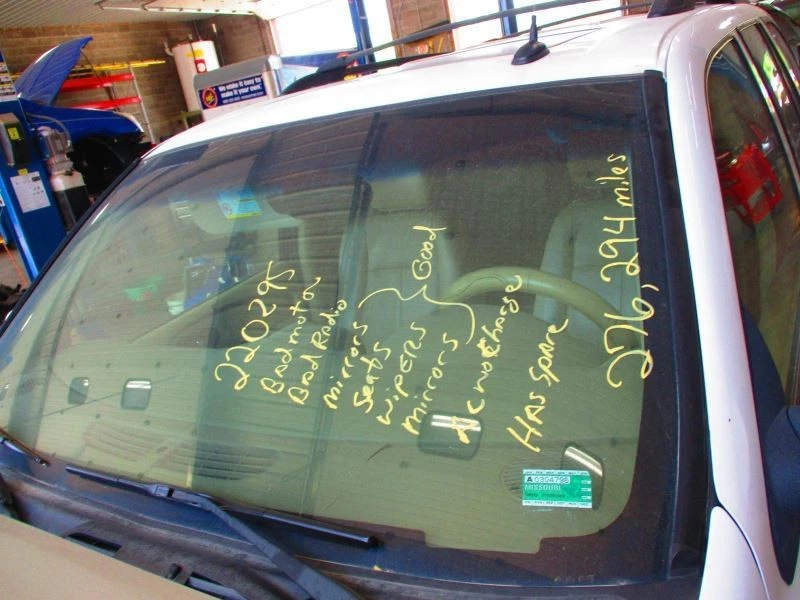 We make it easy to
make it your own.
220295
Bad motor
Bad Radio
mirrors
Seats
WIPERS
mirrors
Good
AC no charge
HAS SPARE
276,294 miles
A 0304796
MISSOURI